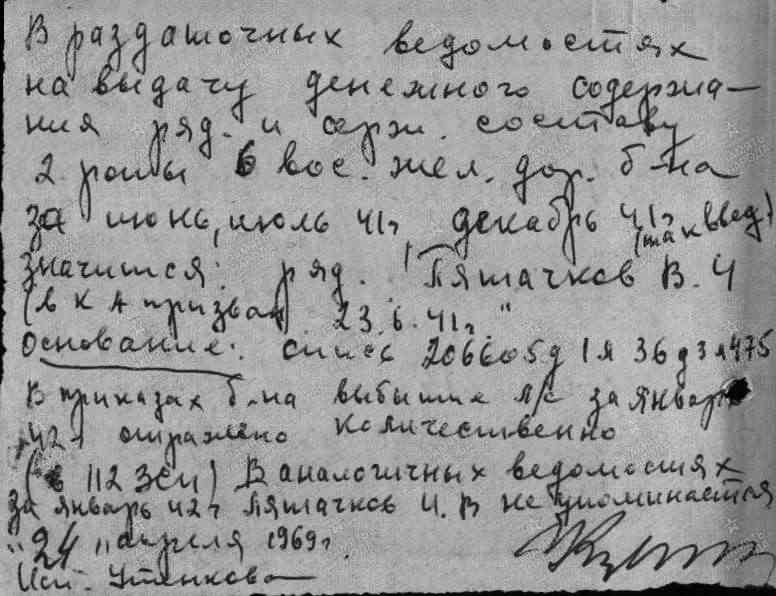 В раздаточных ведомостях
на выдачу денежного содержа-
ния ряд. и серж. составу
2 роты 6 вос. жел. дор. б-на
за июнь, июль 41г декабрь 41г
(так в вед.)
значится: ряд. "Пятачков В. И
(в КА призван 23.6.41г."
Основание: оп. 206605 д 1 л 36 д 3 л 475
В приказах б-на выбытие л/с за январь
42г отражено количественно
(в 112 ЗСП) В аналогичных ведомостях
за январь 42г Пятачков И. В не упоминается
"24" апреля 1969г.
Исп. Утенкова